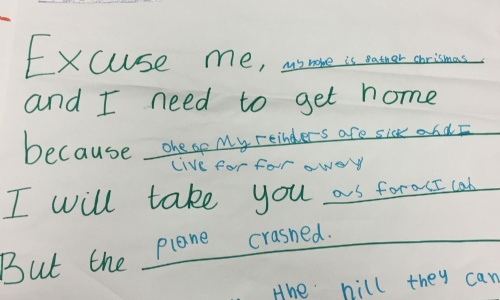 Excuse me, my name is Father chrismas
and I need to get home
because one of My reinders are sick and I
Live far far away
I will take you as far as I can
But the plane crashed.
the hill they can